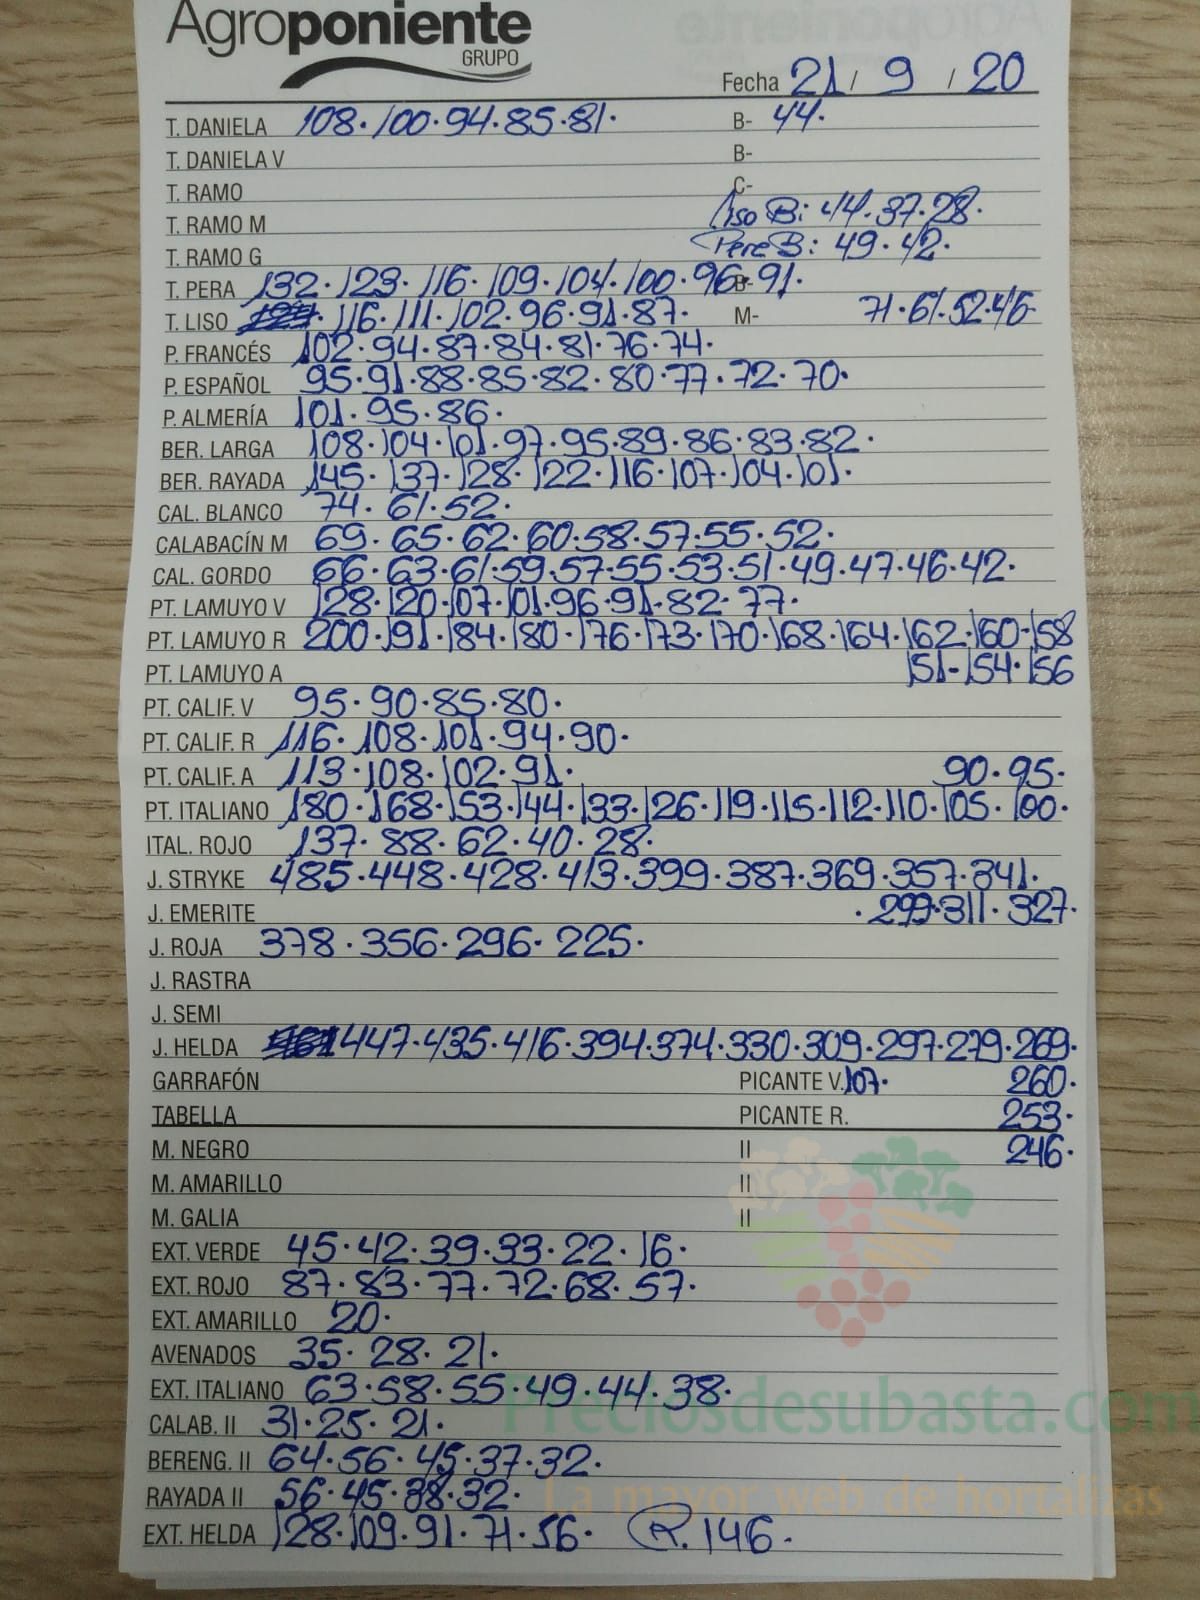 Agroponiente
GRUPO
Fecha 21 / 9 / 20
T. DANIELA 108. 100. 94. 85. 81. B- 44.
T. DANIELA V B-
T. RAMO C-
T. RAMO M Liso B: 44. 37. 28.
T. RAMO G Pera B: 49. 42.
T. PERA 132. 123. 116. 109. 104. 100. 96. 91.
T. LISO 116. 111. 102. 96. 91. 87. M- 71. 61. 52. 46.
P. FRANCÉS 102. 94. 87. 84. 81. 76. 74.
P. ESPAÑOL 95. 91. 88. 85. 82. 80. 77. 72. 70.
P. ALMERÍA 101. 95. 86.
BER. LARGA 108. 104. 101. 97. 95. 89. 86. 83. 82.
BER. RAYADA 145. 137. 128. 122. 116. 107. 104. 101.
CAL. BLANCO 74. 61. 52.
CALABACÍN M 69. 65. 62. 60. 58. 57. 55. 52.
CAL. GORDO 66. 63. 61. 59. 57. 55. 53. 51. 49. 47. 46. 42.
PT. LAMUYO V 128. 120. 107. 101. 96. 91. 82. 77.
PT. LAMUYO R 200. 191. 184. 180. 176. 173. 170. 168. 164. 162. 160. 158
PT. LAMUYO A 151. 154. 156
PT. CALIF. V 95. 90. 85. 80.
PT. CALIF. R 116. 108. 101. 94. 90.
PT. CALIF. A 113. 108. 102. 91. 90. 95.
PT. ITALIANO 180. 168. 153. 144. 133. 126. 119. 115. 112. 110. 105. 100.
ITAL. ROJO 137. 88. 62. 40. 28.
J. STRYKE 485. 448. 428. 413. 399. 387. 369. 357. 341.
J. EMERITE . 299. 311. 327.
J. ROJA 378. 356. 296. 225.
J. RASTRA
J. SEMI
J. HELDA 447. 435. 416. 394. 374. 330. 309. 297. 279. 269.
GARRAFÓN PICANTE V. 107. 260.
TABELLA PICANTE R. 253.
M. NEGRO II 246.
M. AMARILLO II
M. GALIA II
EXT. VERDE 45. 42. 39. 33. 22. 16.
EXT. ROJO 87. 83. 77. 72. 68. 57.
EXT. AMARILLO 20.
AVENADOS 35. 28. 21.
EXT. ITALIANO 63. 58. 55. 49. 44. 38.
Preciosdesubasta.com
CALAB. II 31. 25. 21.
BERENG. II 64. 56. 45. 37. 32.
RAYADA II 56. 45. 38. 32.
La mayor web de hortalizas
EXT. HELDA 128. 109. 91. 71. 56. R. 146.